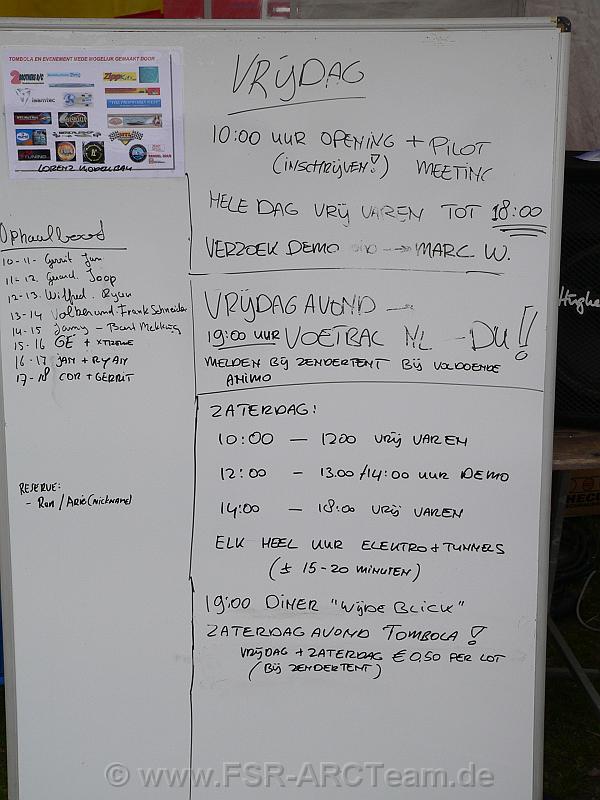 TOMBOLA EN EVENEMENT MEDE MOGELIJK GEMAAKT DOOR
LORENZ MODELBAU
Ophaalboot
10-11- Gerrit Jan
11-12 Guard. Joop
12-13. Wilfred. Ryan
13-14 Volker und Frank Schneider
14-15 Jamy - Bart Mekking
15-16 GE + XTREME
16-17 JAN + RYAN
17-18 COR + GERRIT
RESERVE:
- Ron / Arie (nickname)
VRIJDAG
10:00 UUR OPENING + PILOT
(INSCHRIJVEN!) MEETING
HELE DAG VRIJ VAREN TOT 18:00
VERZOEK DEMO → MARC W.
VRIJDAGAVOND →
19:00 UUR VOETBAL NL - DU!!
MELDEN BIJ ZENDERTENT BIJ VOLDOENDE
ANIMO
ZATERDAG:
10:00 - 1200 VRIJ VAREN
12:00 - 13.00/14:00 UUR DEMO
14:00 - 18:00 VRIJ VAREN
ELK HEEL UUR ELEKTRO + TUNNELS
(± 15-20 MINUTEN)
19:00 DINER "WIJDE BLICK"
ZATERDAGAVOND TOMBOLA!
VRIJDAG + ZATERDAG € 0,50 PER LOT
(BIJ ZENDERTENT)
Hughe
© www.FSR-ARCTeam.de